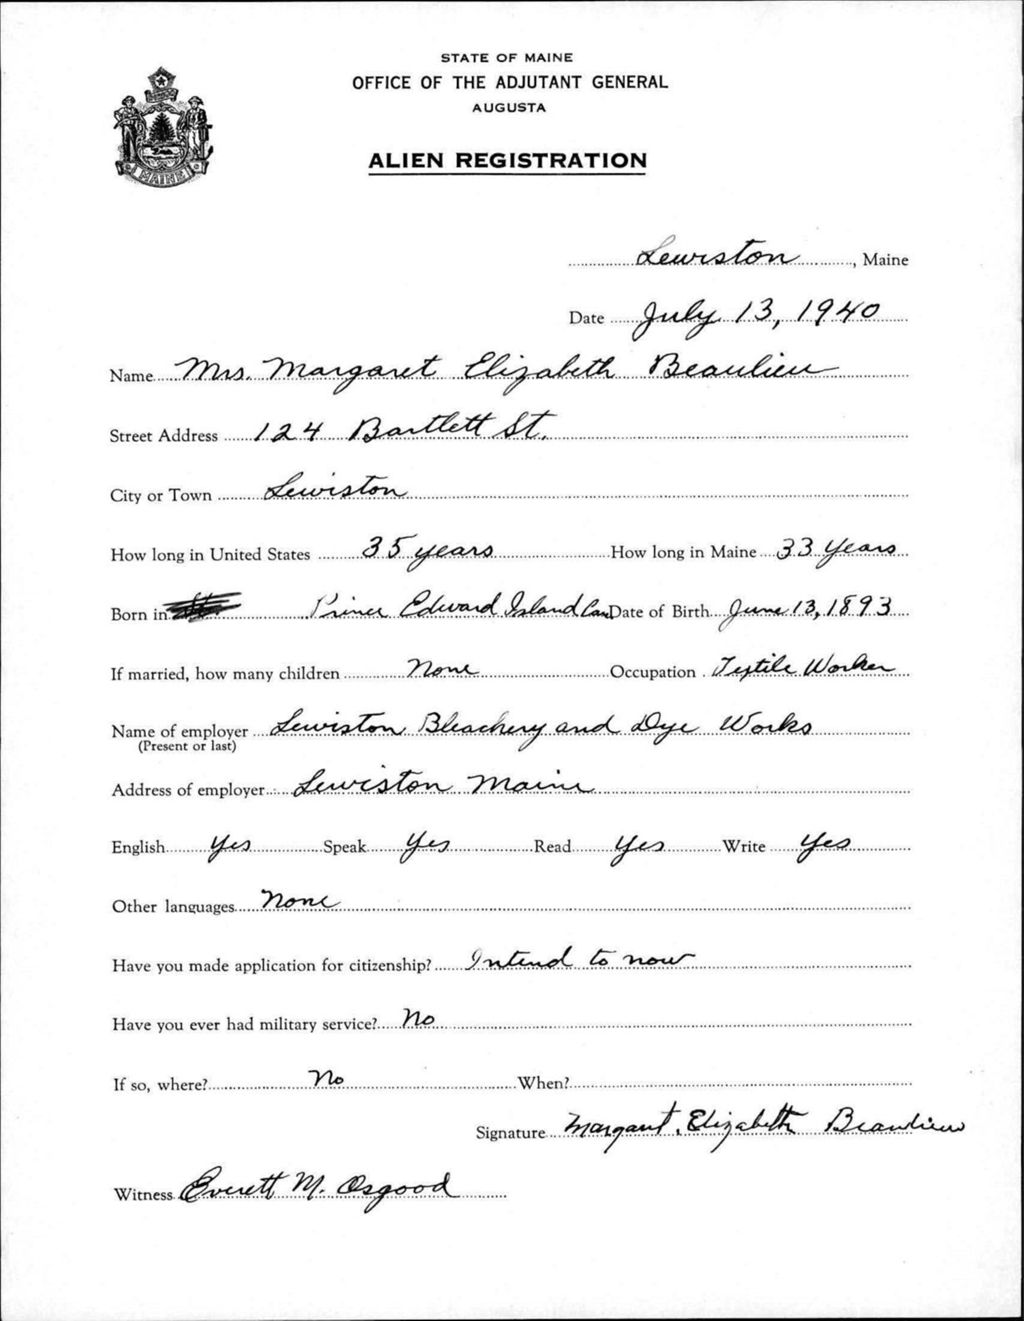 STATE OF MAINE
OFFICE OF THE ADJUTANT GENERAL
AUGUSTA
ALIEN REGISTRATION
MAINE
Lewiston, Maine
Date July 13, 1940
Name Mrs. Margaret Elizabeth Beaulieu
Street Address 124 Bartlett St.
City or Town Lewiston
How long in United States 35 years How long in Maine 33 Years
Born in Prince Edward Island Can Date of Birth June 13, 1893
If married, how many children None Occupation Textile Worker
Name of employer Lewiston Bleachery and Dye Works
(Present or last)
Address of employer Lewiston Maine
English Yes Speak Yes Read Yes Write Yes
Other languages None
Have you made application for citizenship? Intend to now
Have you ever had military service? No
If so, where? No When?
Signature Margaret Elizabeth Beaulieu
Witness Everett M. Osgood